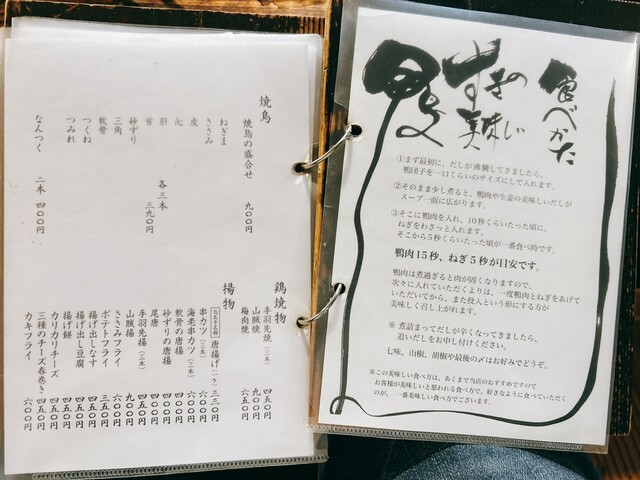 焼鳥
焼鳥の盛合せ 九〇〇
ねぎま
ささみ
皮
心
肝
首
砂ずり
三角
軟骨
つくね
つみれ
各三本 三九〇円
なんつく 二本 四〇〇円
鶏焼物
手羽先焼(三本) 四五〇
山賊焼 九〇〇
梅肉焼 六五〇
揚物
唐揚げ(一ケ) 三三〇
串カツ(三本)
海老串カツ(三本)
軟骨の唐揚
砂ずりの唐揚
尾唐
手羽先唐揚(三本)
山賊揚
ささみフライ
ポテトフライ
揚げ出しなす
揚げ出し豆腐
揚げ餅
カリカリチーズ
三種のチーズ春巻き
カキフライ 六〇〇円
鴨すきの美味しい食べかた
①まず最初に、だしが沸騰してきましたら、
鴨団子を一口くらいのサイズにして入れます。
②そのまま少し煮ると、鴨肉や生姜の美味しいだしが
スープ一面に広がります。
③そこに鴨肉を入れ、10秒くらいたった頃に、
ねぎをわさっと入れます。
そこから5秒くらいたった頃が一番食べ時です。
鴨肉15秒、ねぎ5秒が目安です。
鴨肉は煮過ぎると肉が固くなりますので、
次々に入れていただくよりは、一度鴨肉とねぎをあげて
いただいてから、また投入という形にする方が
美味しく召し上がれます。
※ 煮詰まってだしが辛くなってきましたら、
追いだしをお申し付けください。
七味、山椒、胡椒や最後の〆はお好みでどうぞ。
※この美味しい食べ方は、あくまで当店のおすすめですので
お客様が美味しいと思われる食べ方で、好きなように食べていただく
のが、一番美味しい食べ方でございます。